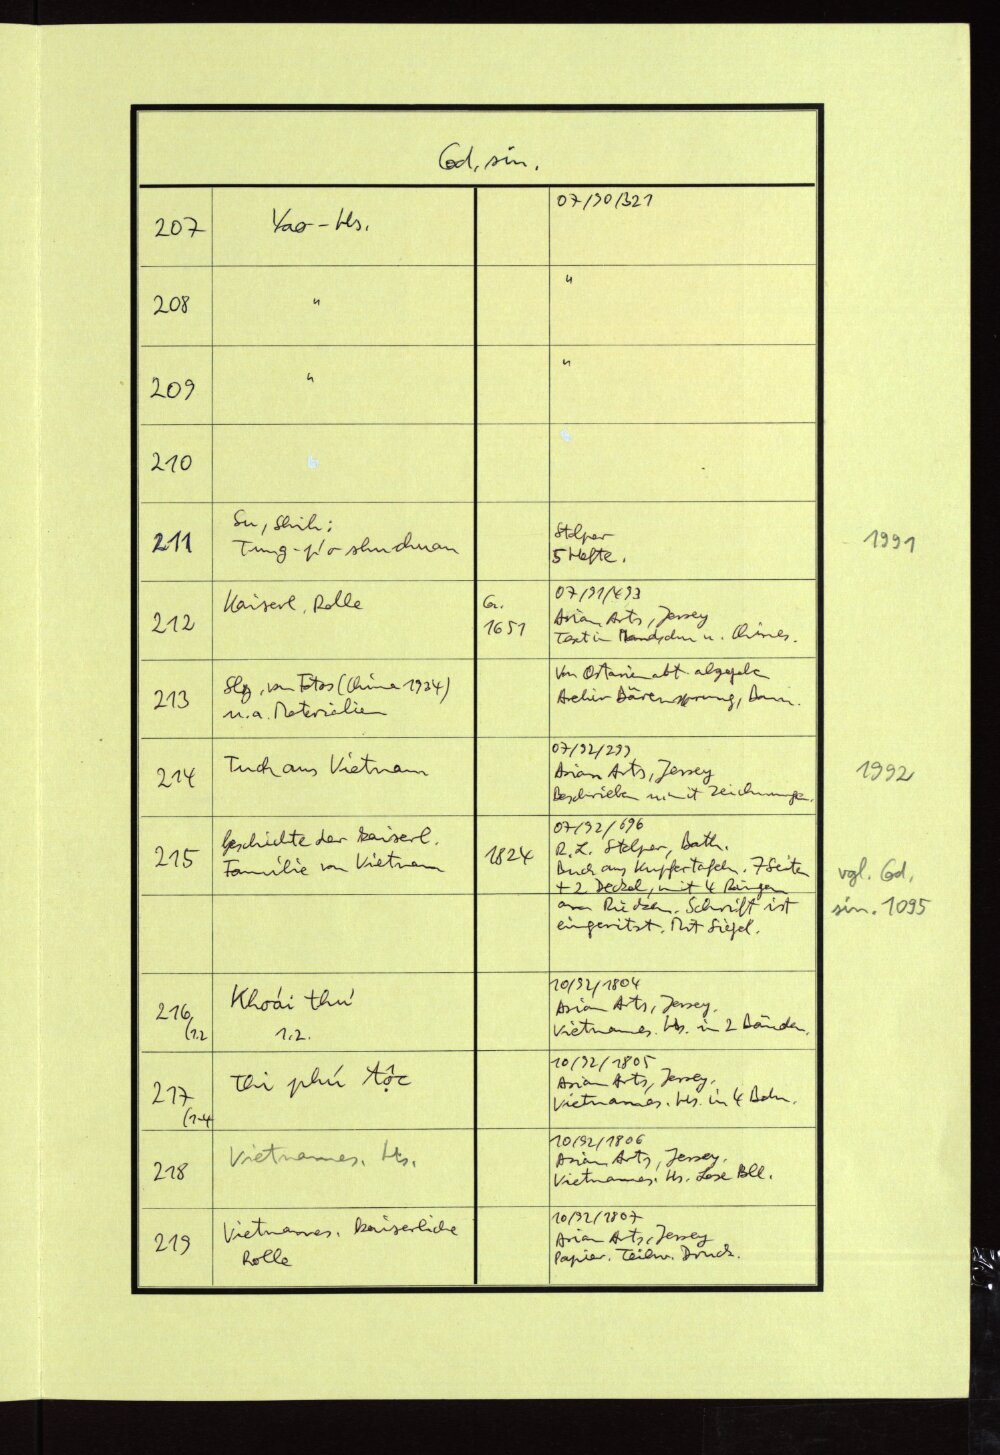 Cod. sin.
207 Yao-Hs. 07/90/321
208 " "
209 " "
210 " "
211 Su, Shih:
Tung-p'o shu chuan
Stolper
5 Hefte.
1991
212 Kaiserl. Rolle
Ca.
1651
07/91/493
Asian Arts, Jersey
Text in Mandschu u. Chines.
213 Slg. von Fotos (China 1934)
u.a. Materialien
Von Ostasienabt. abgegeben
Archiv Bärensprung, Bonn.
214 Tuch aus Vietnam
07/92/299
Asian Arts, Jersey
Beschrieben u. mit Zeichnungen.
1992
215 Geschichte der kaiserl.
Familie von Vietnam
1824
07/92/696
R.L. Stolper, Bath.
Buch aus Kupfertafeln. 7 Seiten
+ 2 Deckel, mit 4 Ringen
am Rücken. Schrift ist
eingeritzt. Mit Siegel.
vgl. Cod.
sin. 1095
216 Khoái thư
(1.2 1.2.
10/92/1804
Asian Arts, Jersey.
Vietnames. Hs. in 2 Bänden.
217 Thi phú tộc
(1-4
10/92/1805
Asian Arts, Jersey.
Vietnames. Hs. in 4 Bdn.
218 Vietnames. Hs.
10/92/1806
Asian Arts, Jersey.
Vietnames. Hs. Lose Bll.
219 Vietnames. kaiserliche
Rolle
10/92/1807
Asian Arts, Jersey
Papier. Teilw. Druck.